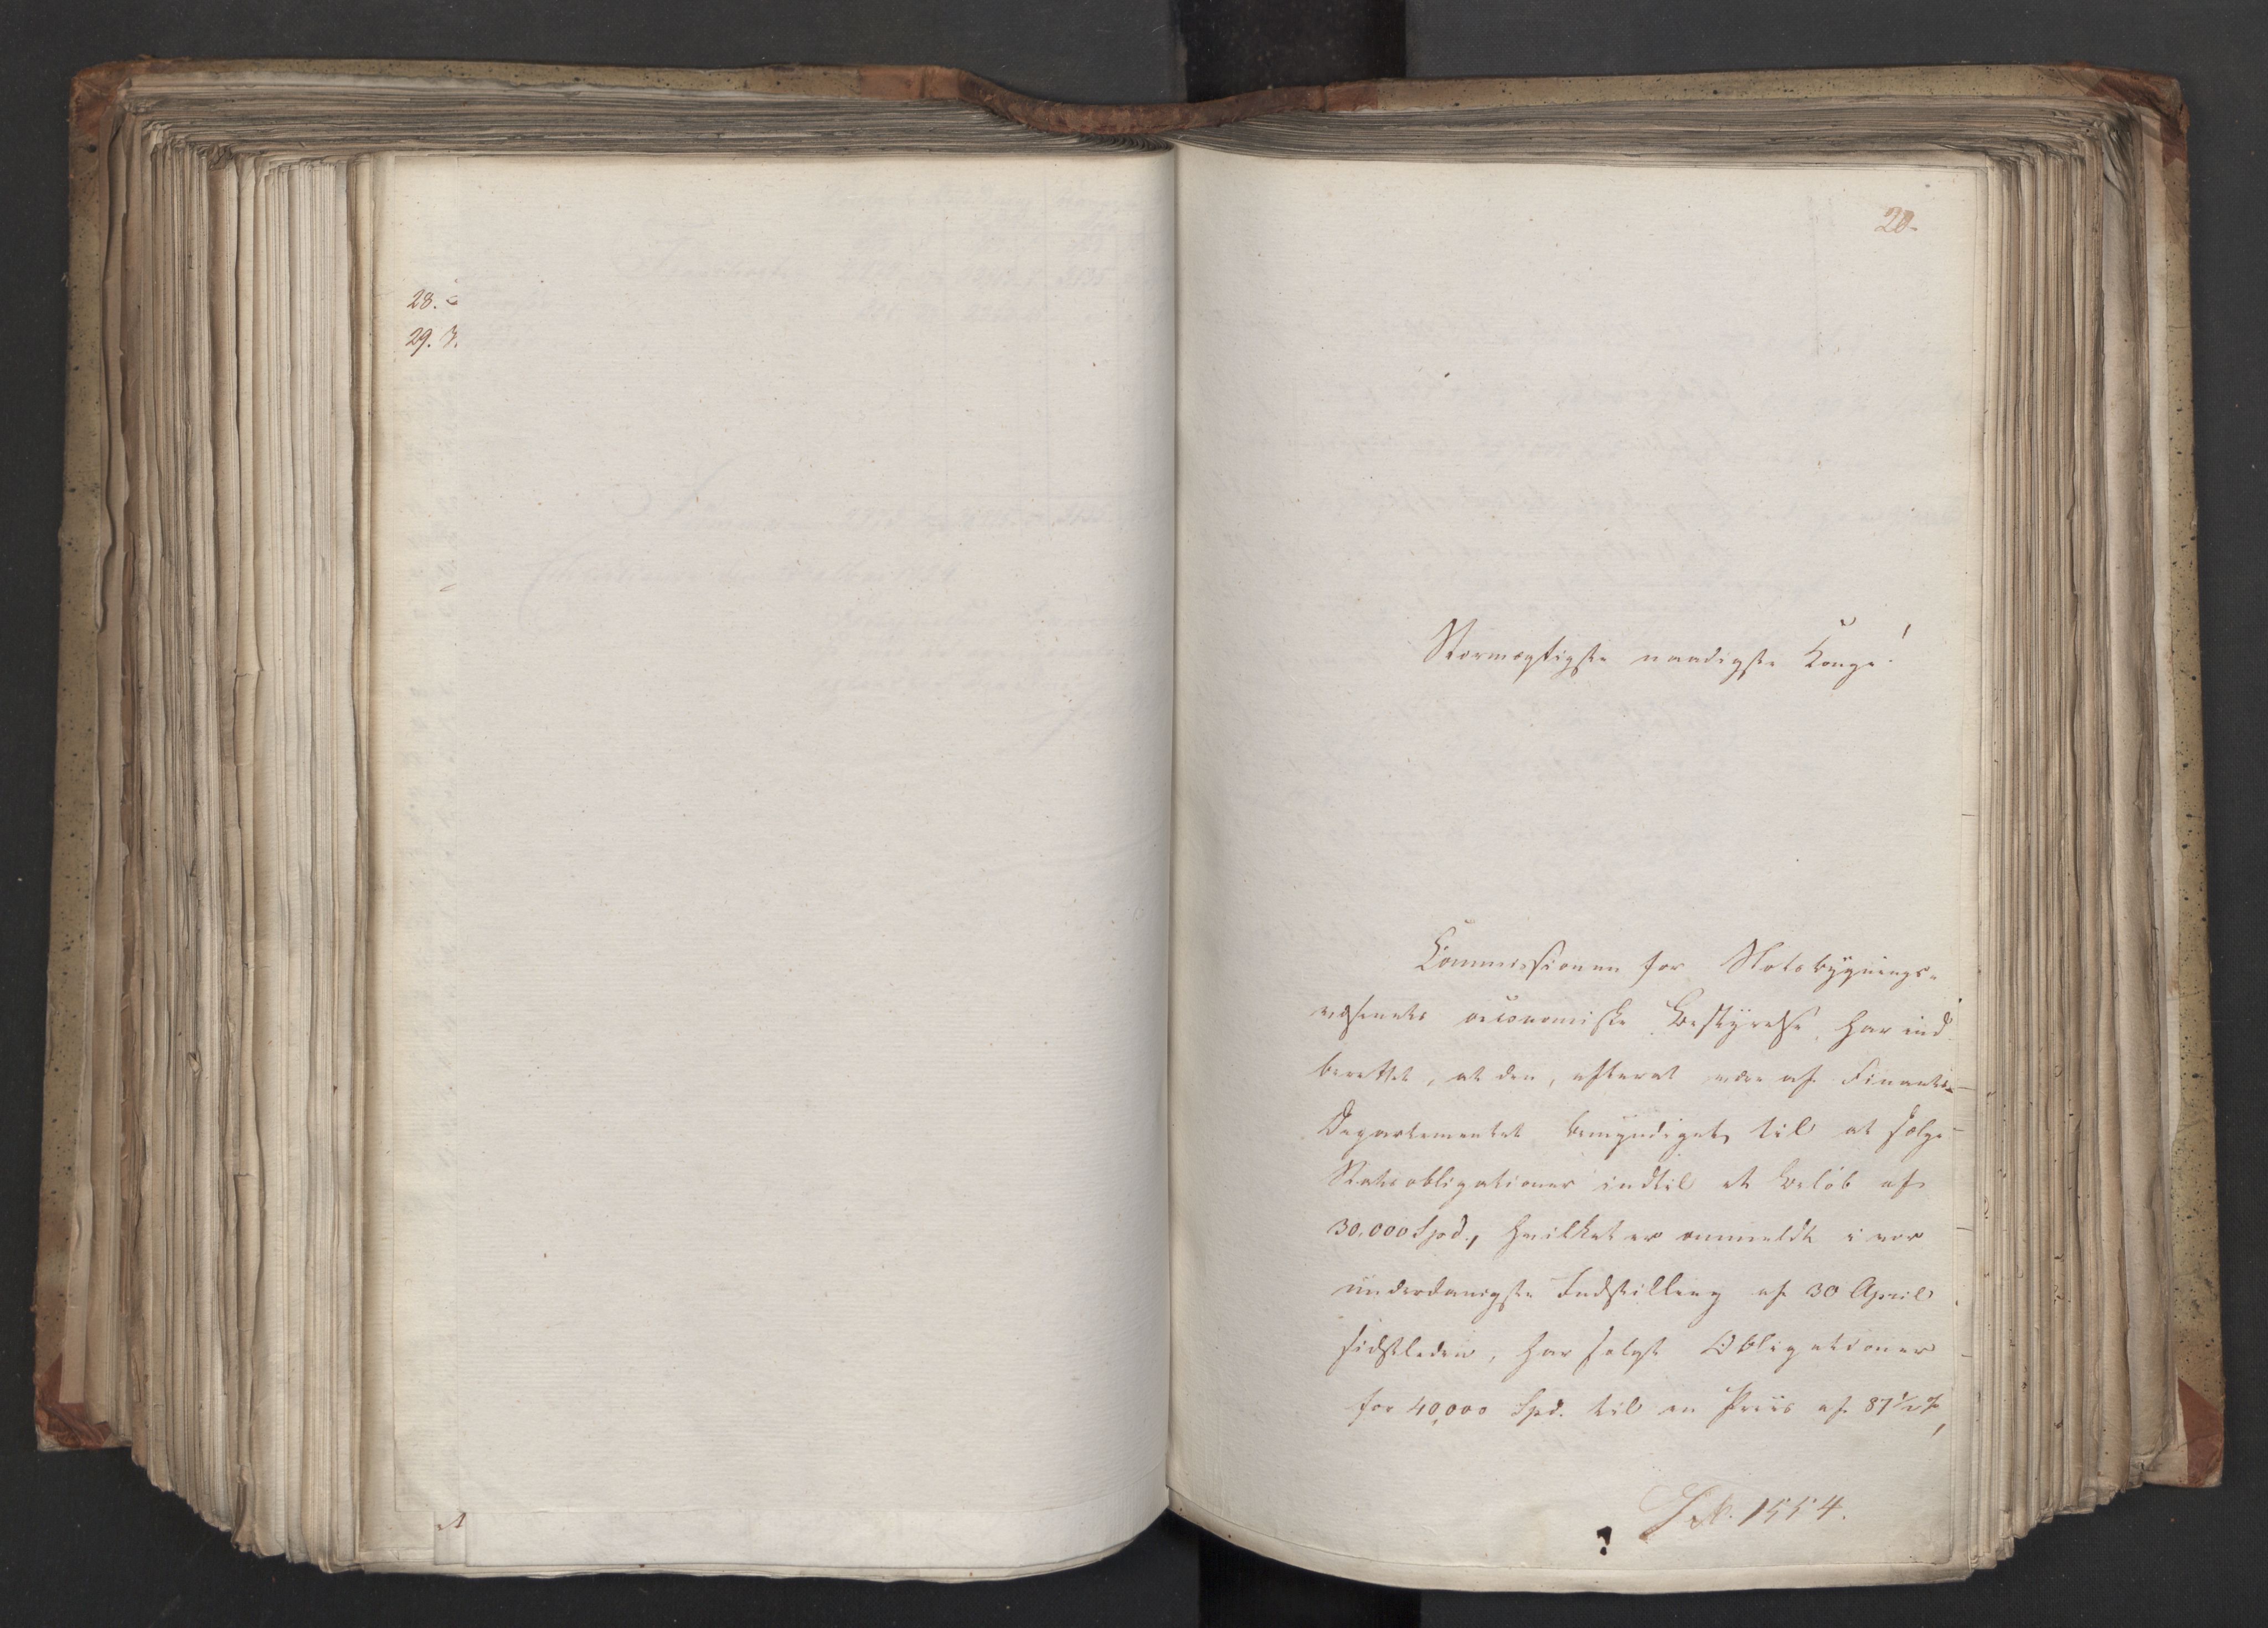 28.
29.
20.
Stormægtigste naadigste Konge!
Commissionen for Slotsbygnings-
væsenets oeconomiske Bestyrelse har ind
berettet, at den, efterat være af Finants-
Departementet bemyndiget til at sælge
Statsobligationer indtil et Beløb af
30,000 Spd., hvilket er anmeldt i vor
underdanigste Indstilling af 30 April
sidstleden, har solgt Obligationer
for 40,000 Spd. til en Priis af 87 1/2 %,
1554.